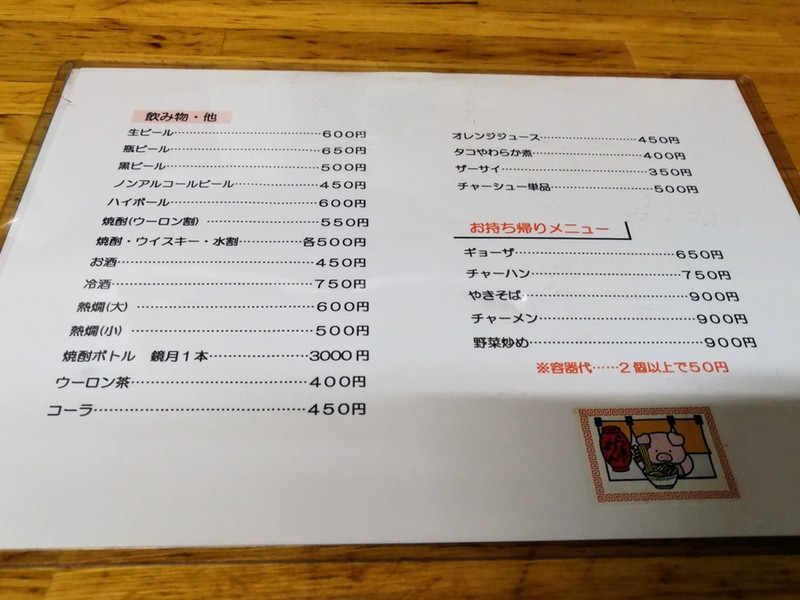 飲み物・他
生ビール……………………………600円
瓶ビール……………………………650円
黒ビール……………………………500円
ノンアルコールビール………………450円
ハイボール…………………………600円
焼酎(ウーロン割)…………………550円
焼酎・ウイスキー・水割…………各500円
お酒…………………………………450円
冷酒…………………………………750円
熱燗(大)……………………………600円
熱燗(小)……………………………500円
焼酎ボトル　鏡月1本………………3000円
ウーロン茶…………………………400円
コーラ………………………………450円
オレンジジュース……………………450円
タコやわらか煮………………………400円
ザーサイ……………………………350円
チャーシュー単品……………………500円
お持ち帰りメニュー
ギョーザ……………………………650円
チャーハン…………………………750円
やきそば……………………………900円
チャーメン…………………………900円
野菜炒め……………………………900円
※容器代……2個以上で50円